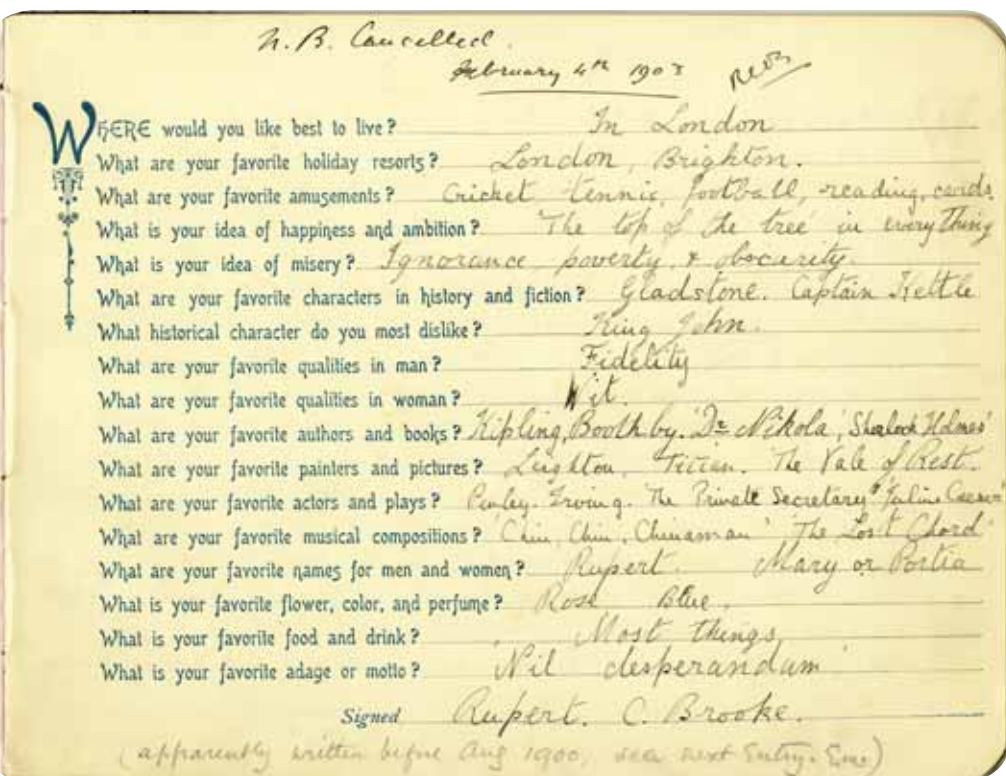 N.B. Cancelled.
February 4th 1903 RCB
WHERE would you like best to live? In London
What are your favorite holiday resorts? London, Brighton.
What are your favorite amusements? Cricket tennis, football, reading, cards.
What is your idea of happiness and ambition? 'The top of the tree' in everything
What is your idea of misery? Ignorance, poverty, & obscurity.
What are your favorite characters in history and fiction? Gladstone. Captain Kettle
What historical character do you most dislike? King John.
What are your favorite qualities in man? Fidelity
What are your favorite qualities in woman? Wit.
What are your favorite authors and books? Kipling, Boothby. 'Dr Nikola', 'Sherlock Holmes'
What are your favorite painters and pictures? Leighton, Titian. The Vale of Rest.
What are your favorite actors and plays? Penley. Irving. "The Private Secretary" "Juline Caesar"
What are your favorite musical compositions? 'Chin, Chin, Chinaman' 'The Lost Chord'
What are your favorite names for men and women? Rupert. Mary or Portia
What is your favorite flower, color, and perfume? Rose Blue.
What is your favorite food and drink? Most things
What is your favorite adage or motto? 'Nil desperandum'
Signed Rupert. C. Brooke.
(apparently written before Aug 1900, see next Entry.